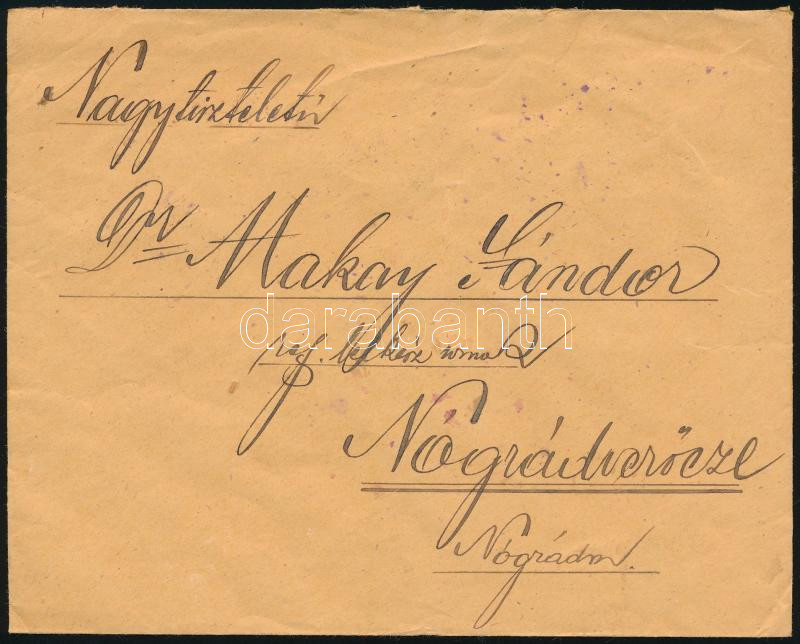 Nagytiszteletű
Dr Makay Sándor
darabanth
ref. lelkész úrnak
Nógrádverőcze
Nógrádm.